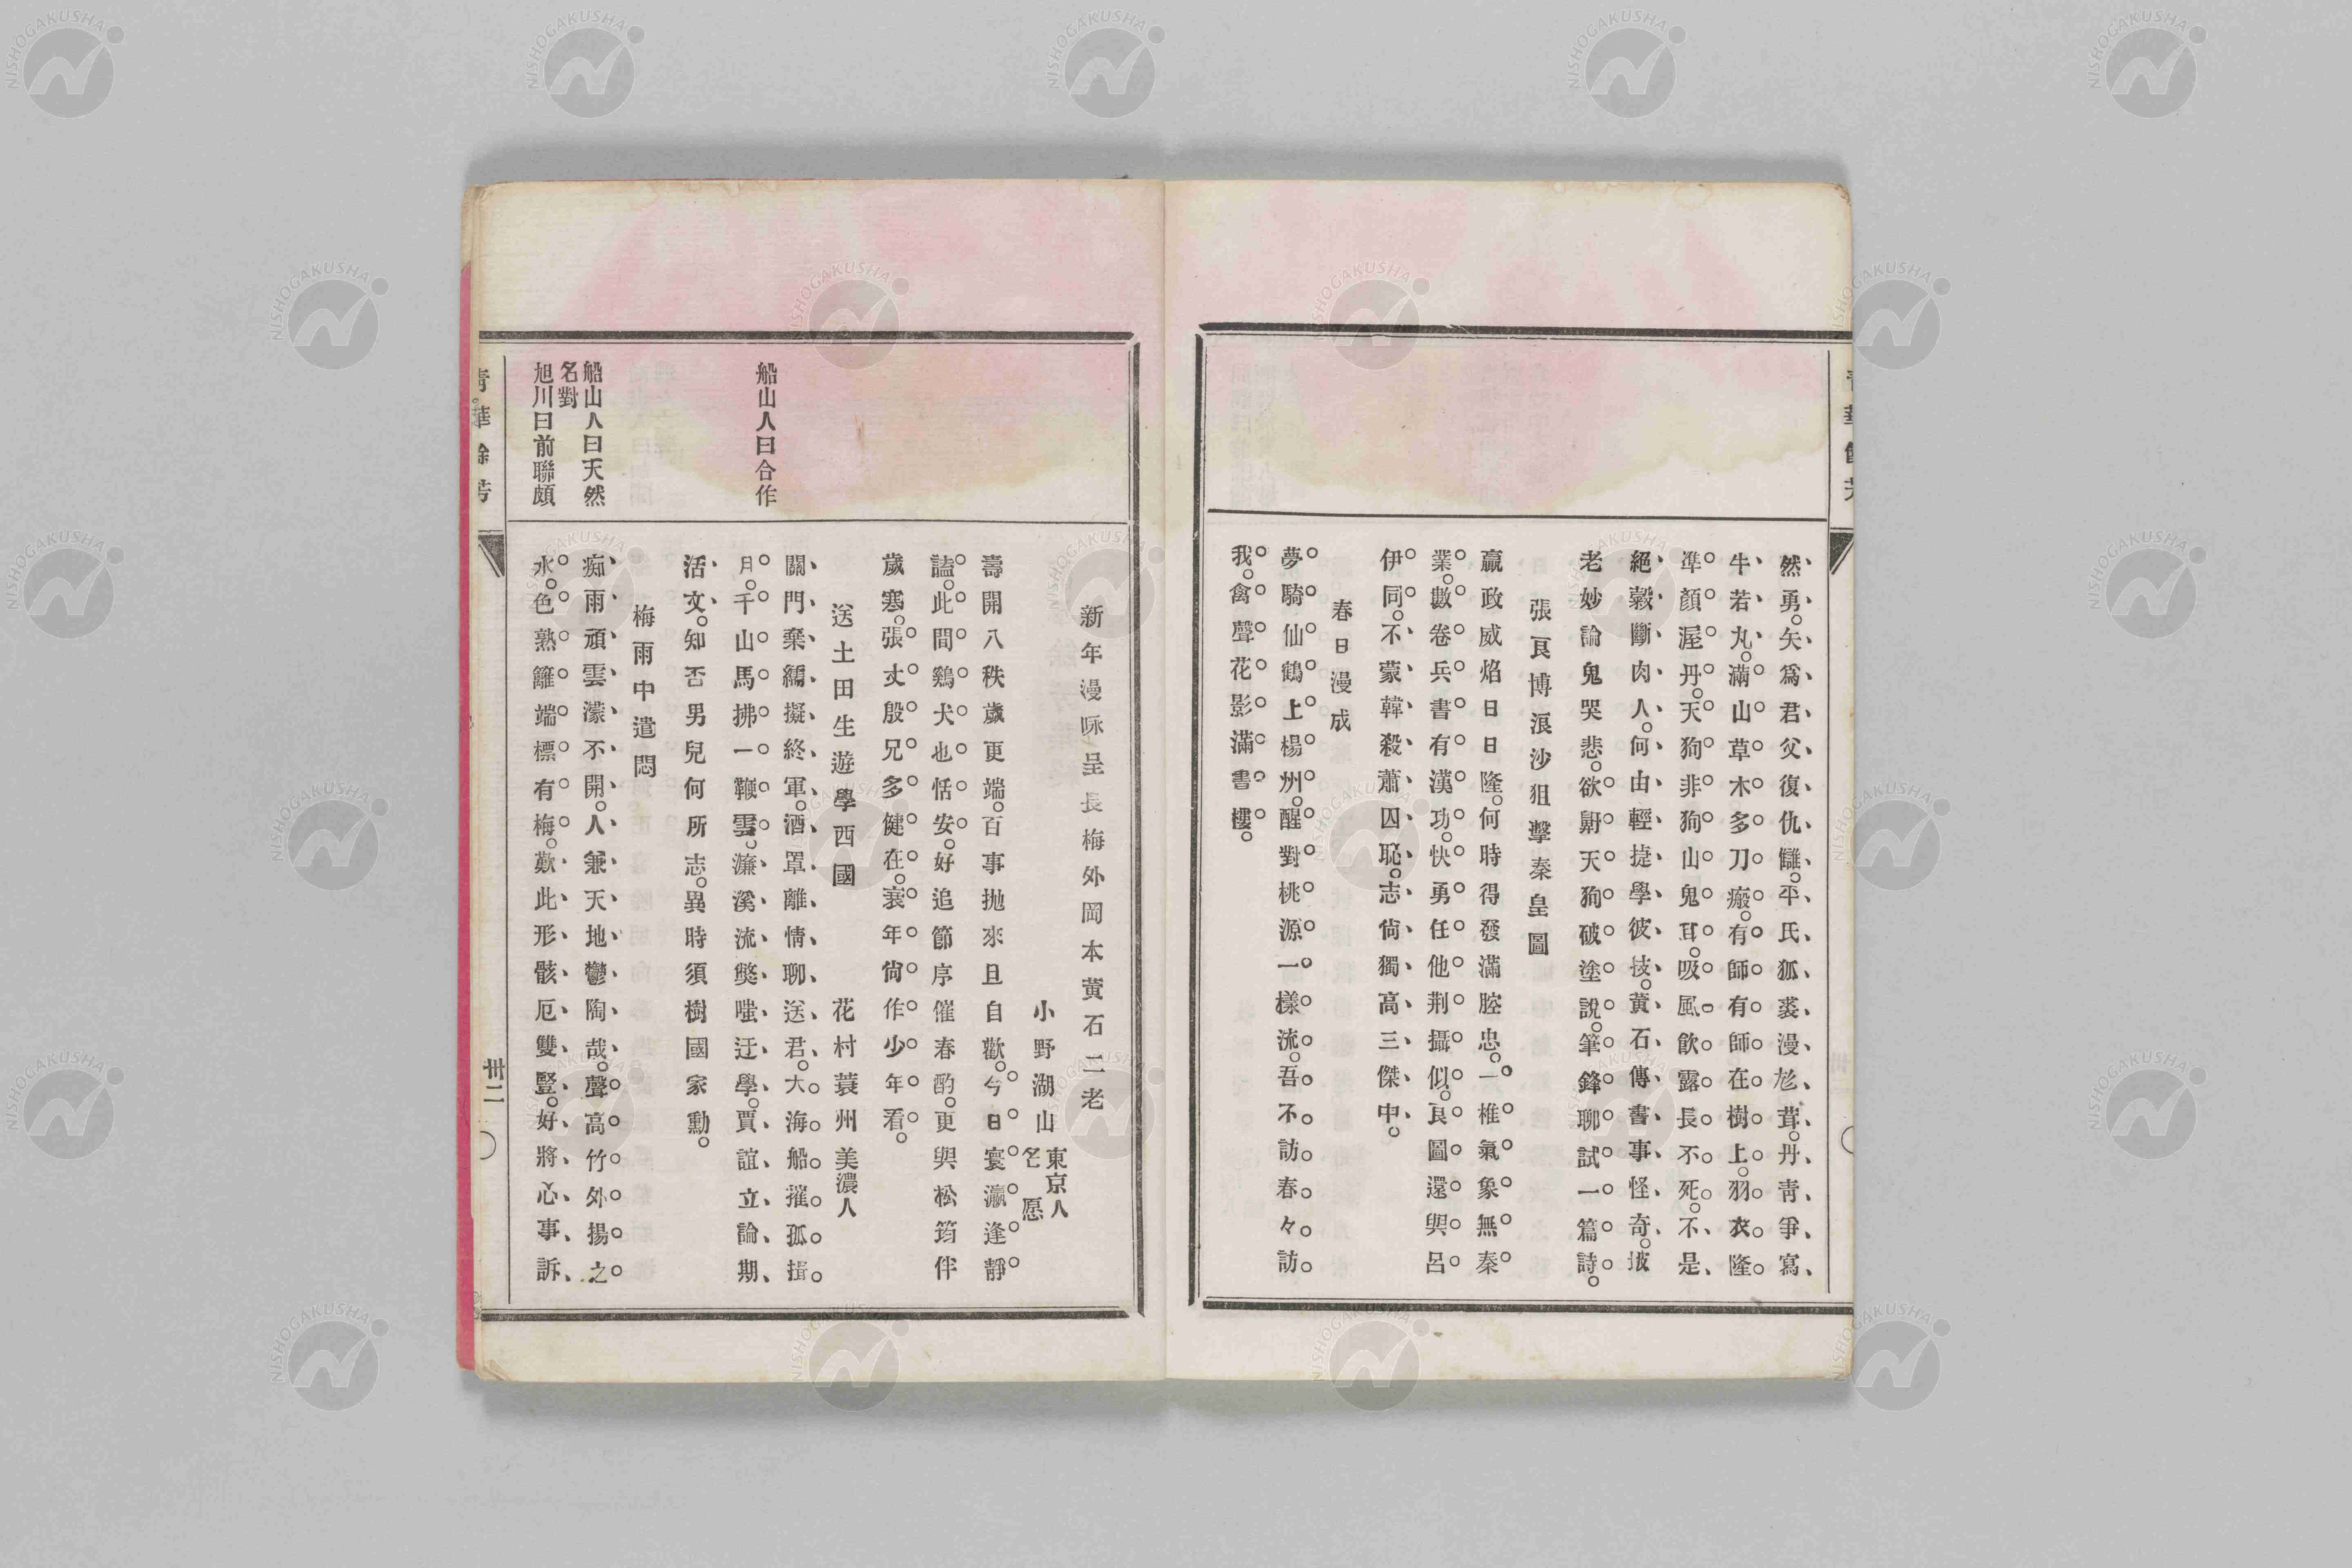 然勇。矢爲君父復仇讎。平氏狐裘漫尨茸。丹靑爭寫
牛若丸。滿山草木多刀瘢。有師有師在樹上。羽衣隆
準顏渥丹。天狗非狗山鬼耳。吸風飮露長不死。不是
絕穀斷肉人。何由輕捷學彼技。黃石傳書事怪奇。坡
老妙論鬼哭悲。欲鼾天狗破塗說。筆鋒聊試一篇詩。
張良博浪沙狙擊秦皇圖
贏政威焰日日隆。何時得發滿腔忠。一椎氣象無秦
業。數卷兵書有漢功。快勇任他荆攝似。良圖還與呂
伊同。不蒙韓殺蕭囚恥。志尙獨高三傑中。
春日漫成
夢騎仙鶴上楊州。醒對桃源一樣流。吾不訪春々訪
我。禽聲花影滿書樓。
新年漫咏呈長梅外岡本黃石二老
小野湖山 東京人 名愿
壽開八秩歲更端。百事抛來且自歡。今日寰瀛逢靜
謐。此間鷄犬也恬安。好追節序催春酌。更與松筠伴
歲寒。張丈殷兄多健在。衰年尙作少年看。
送土田生遊學西國 花村蓑州 美濃人
關門棄繻擬終軍。酒罩離情聊送君。大海船摧孤揖
月。千山馬拂一鞭雲。濂溪流獘嗤迂學。賈誼立論期
活文。知否男兒何所志。異時須樹國家勳。
梅雨中遣悶
痴雨頑雲濛不開。人兼天地鬱陶哉。聲高竹外揚之
水。色熟籬端標有梅。歎此形骸厄雙豎。好將心事訴
船山人曰合作
船山人曰天然
名對
旭川曰前聯頗
靑華餘芳
卅二